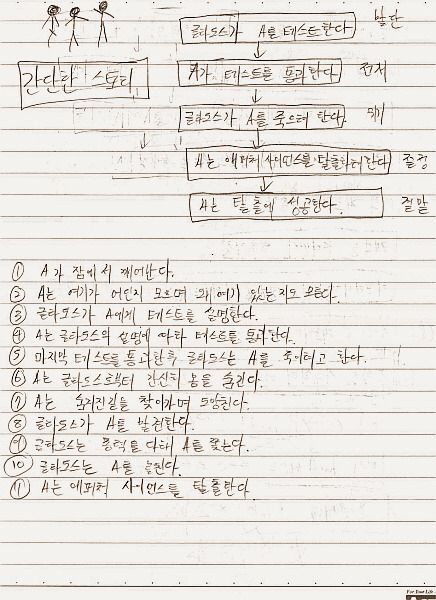 글라도스가 A를 테스트한다. 발단
간단한 스토리
A가 테스트를 통과한다. 전개
글라도스가 A를 죽으려 한다. 위기
A는 애퍼처 사이언스를 탈출하려 한다 절정
A는 탈출에 성공한다. 결말
① A가 잠에서 깨어난다.
② A는 여기가 어딘지 모르며 왜 여기 있는지도 모른다.
③ 글라도스가 A에게 테스트를 설명한다.
④ A는 글라도스의 설명에 따라 테스트를 통과한다.
⑤ 마지막 테스트를 통과한후 글라도스는 A를 죽이려고 한다.
⑥ A는 글라도스로부터 간신히 몸을 숨긴다.
⑦ A는 숨겨진길을 찾아가며 도망친다.
⑧ 글라도스가 A를 발견한다.
⑨ 글라도스는 총력을 다해 A를 쫓는다.
⑩ 글라도스는 A를 놓친다.
⑪ A는 애퍼처 사이언스를 탈출한다
For Your Life